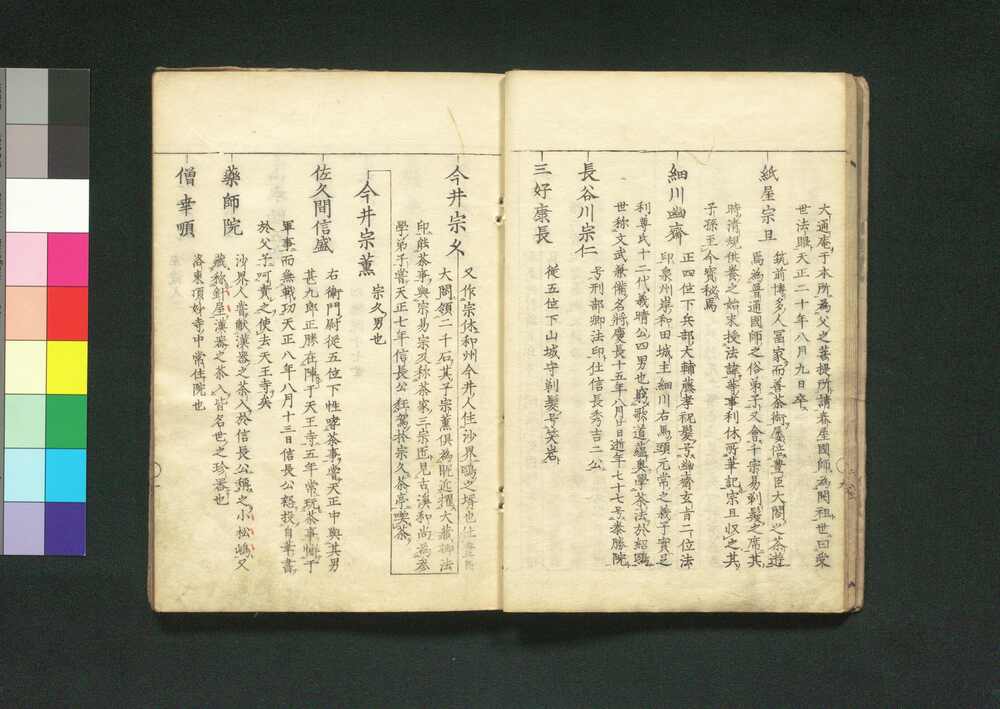 大通庵于本所為父之菩提所請春屋國師為開祖世曰宗
世法眼天正二十年八月九日卒
紙屋宗旦
筑前博多人冨家而善茶術屢倍豊臣大閤之茶遊
焉為普通國師之俗弟子又會千宗易剃髮之席其
時清規供養之始末授法諱等事利休所筆記宗旦収之其
子孫至今寳秘焉
細川幽齋
正四位下兵部大輔藤孝祝髮号幽齋玄旨二位法
印泉州岸和田城主細川右馬頭元常之義子實足
利尊氏十二代義晴公四男也窮歌道蘊奥學茶法於紹鷗
世称文武兼備名将慶長十五年八月廿日逝年七十七号泰勝院
長谷川宗仁
号刑部卿法印仕信長秀吉二公
三好康長
従五位下山城守剃髮号笑岩
今井宗久
又作宗休和州今井人住沙界鷗之壻也仕
大閤領二千石其子宗薫俱為昵近擢大藏卿法
印能茶事與宗易宗及称茶家三宗匠見古溪和尚為参
學弟子嘗天正七年信長公枉駕於宗久茶亭喫茶
今井宗薫
宗久男也
佐久間信盛
右衛門尉従五位下性嗜茶事嘗天正中與其男
甚九郎正勝在陣于天王寺五年常玩茶事慵于
軍事而無戦功天正八年八月十三日信長公怒投自筆書
於父子呵責之使去天王寺矣
藥師院
沙界人嘗献漢器之茶入於信長公称之小松嶋又
藏称針屋漢器之茶入皆名世之珍器也
僧幸順
洛東頂妙寺中常住院也